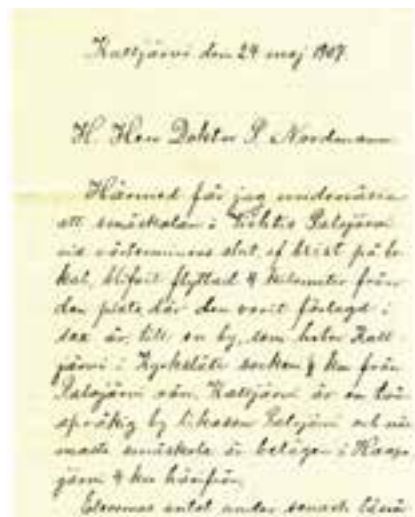 Kalljärvi den 24 maj 1907.
H. Herr Doktor P. Nordmann
Härmed får jag underrätta
att småskolan i Vichtis Palojärvi
vid vårterminens slut, af brist på lo-
kal, blifvit flyttad 4 kilometer från
den plats där den varit förlagd i
sex år, till en by, som heter Kall-
järvi i Kyrkslätt socken, km från
Palojärvi ån. Kalljärvi är en två-
språkig by likasom Palojärvi och när-
maste småskola är belägen i Haapa-
järvi 4 km härifrån.
Elevernas antal under senaste läseå